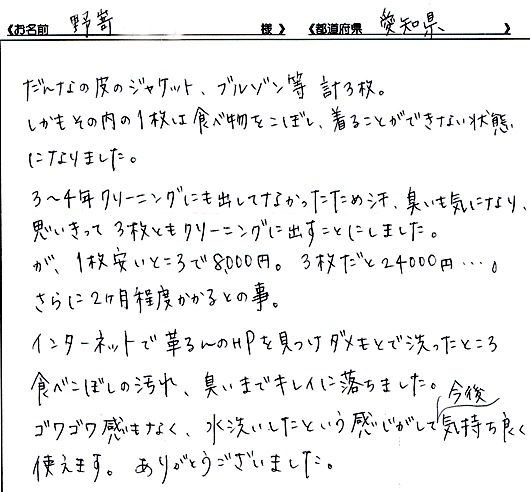 《お名前 野嵜 様》 《都道府県 愛知県 》
だんなの皮のジャケット、ブルゾン等 計3枚。
しかもその内の1枚は食べ物をこぼし、着ることができない状態
になりました。
3〜4年クリーニングにも出してなかったため汗、臭いも気になり、
思いきって3枚ともクリーニングに出すことにしました。
が、1枚安いところで8,000円。3枚だと24000円…。
さらに2ヶ月程度かかるとの事。
インターネットで革るんのHPを見つけダメもとで洗ったところ
食べこぼしの汚れ、臭いまでキレイに落ちました。
ゴワゴワ感もなく、水洗いしたという感じがして今後気持ち良く
使えます。ありがとうございました。